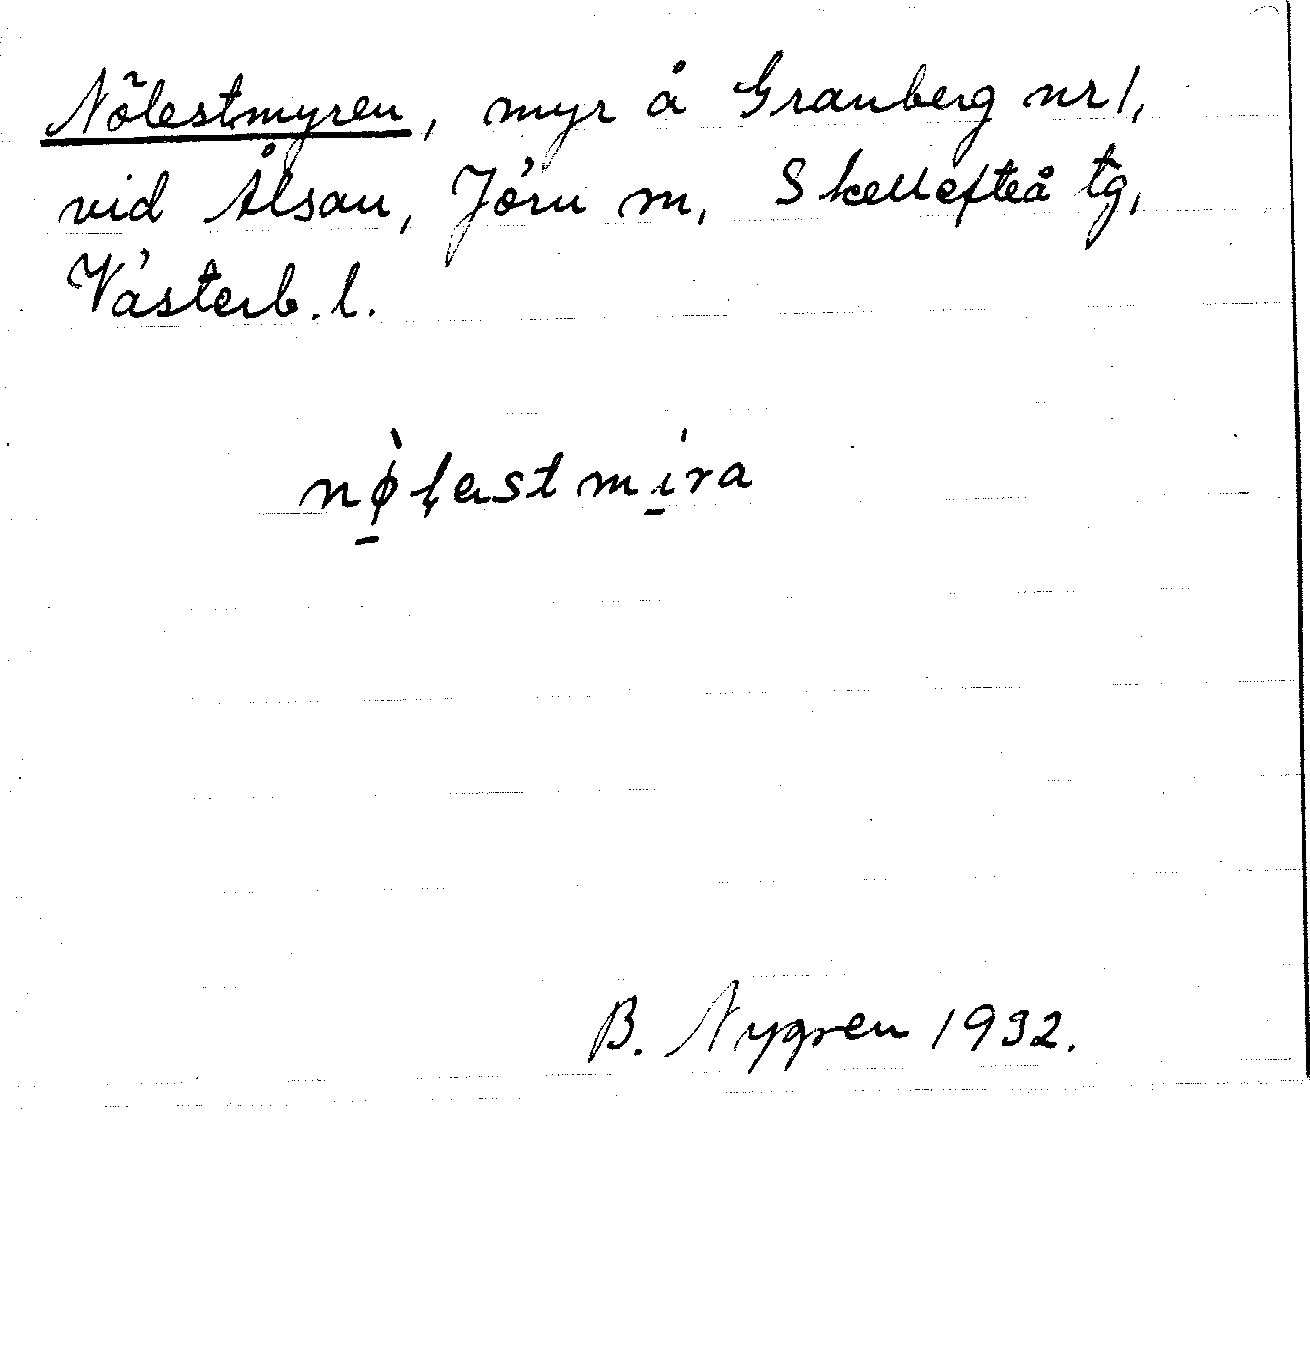 Nölestmyren, myr å Granberg nr 1,
vid Ålsån, Jörn m, Skellefteå tg,
Västerb. l.
nø̠̀ḷest mi̠ra
B. Nygren 1932.